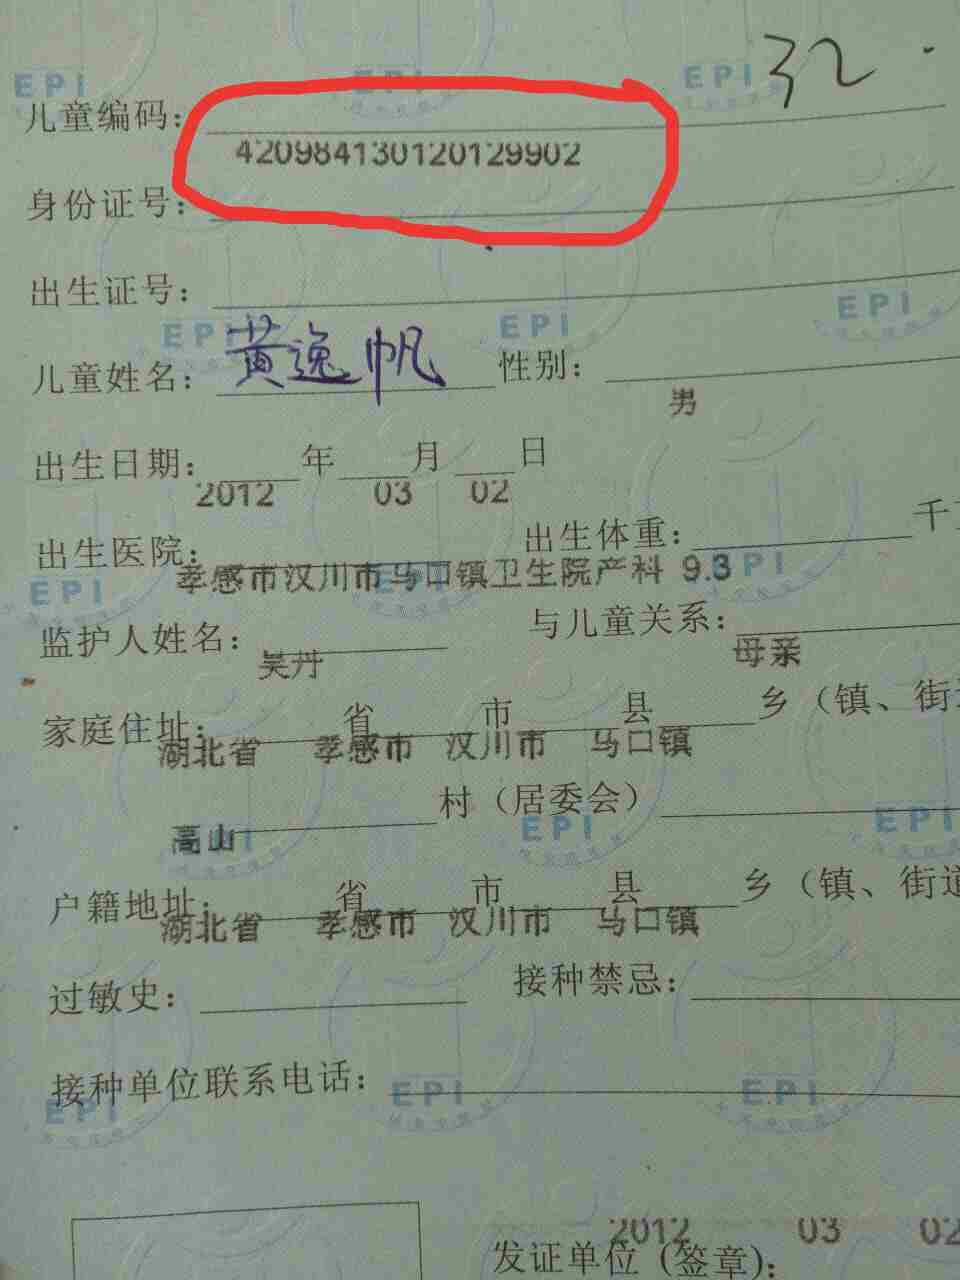 32.
儿童编码：
420984130120129902
身份证号：
出生证号：
儿童姓名：黄逸帆 性别：
男
出生日期： 年 月 日
2012 03 02
出生医院： 出生体重： 千
孝感市汉川市马口镇卫生院产科 9.3
监护人姓名： 与儿童关系：
吴丹 母亲
家庭住址： 省 市 县 乡（镇、街道
湖北省 孝感市 汉川市 马口镇
村（居委会）
高山
户籍地址： 省 市 县 乡（镇、街道
湖北省 孝感市 汉川市 马口镇
过敏史： 接种禁忌：
接种单位联系电话：
2012 03 02
发证单位（签章）：